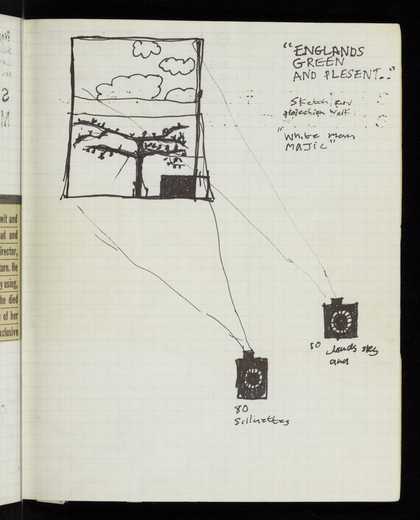 "ENGLANDS
GREEN
AND PLESENT.."
Sketch for
projection Wall
"White Man
MAJIC"
80 clouds sky
and
80
Silluettes
wit and
and
irector,
ture. He
y using,
he died
of her
xclusive